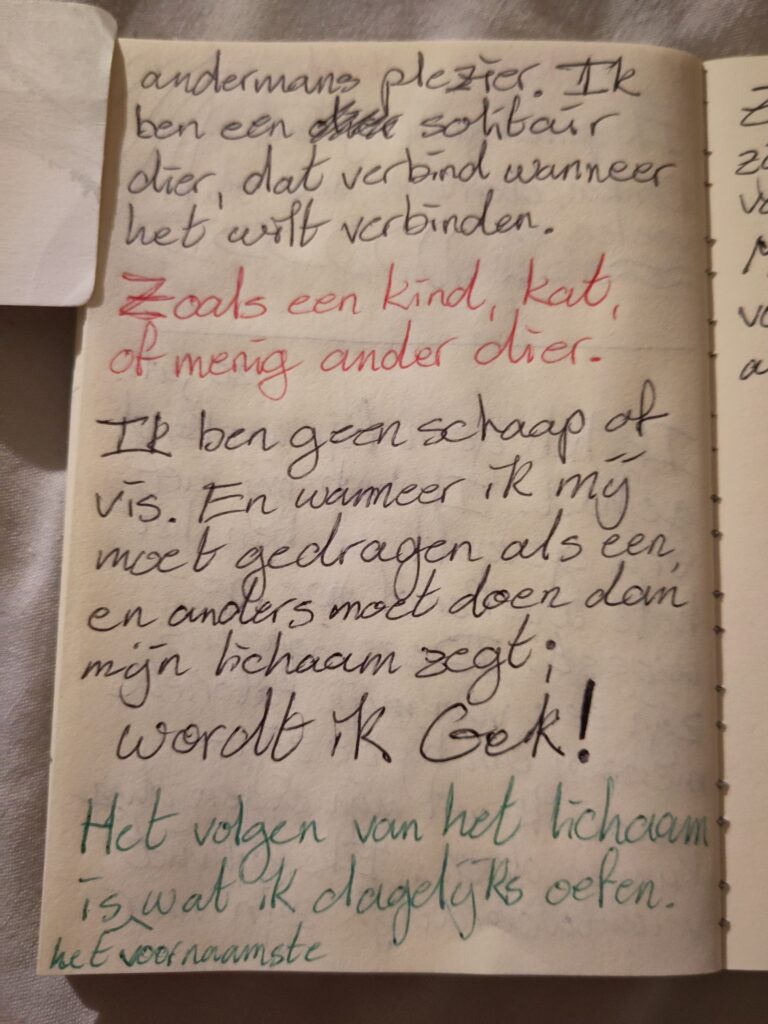 andermans plezier. Ik
ben een solitair
dier, dat verbind wanneer
het wilt verbinden.
Zoals een kind, kat,
of menig ander dier.
Ik ben geen schaap of
vis. En wanneer ik mij
moet gedragen als een,
en anders moet doen dan
mijn lichaam zegt;
wordt ik Gek!
Het volgen van het lichaam
is wat ik dagelijks oefen.
het voornaamste